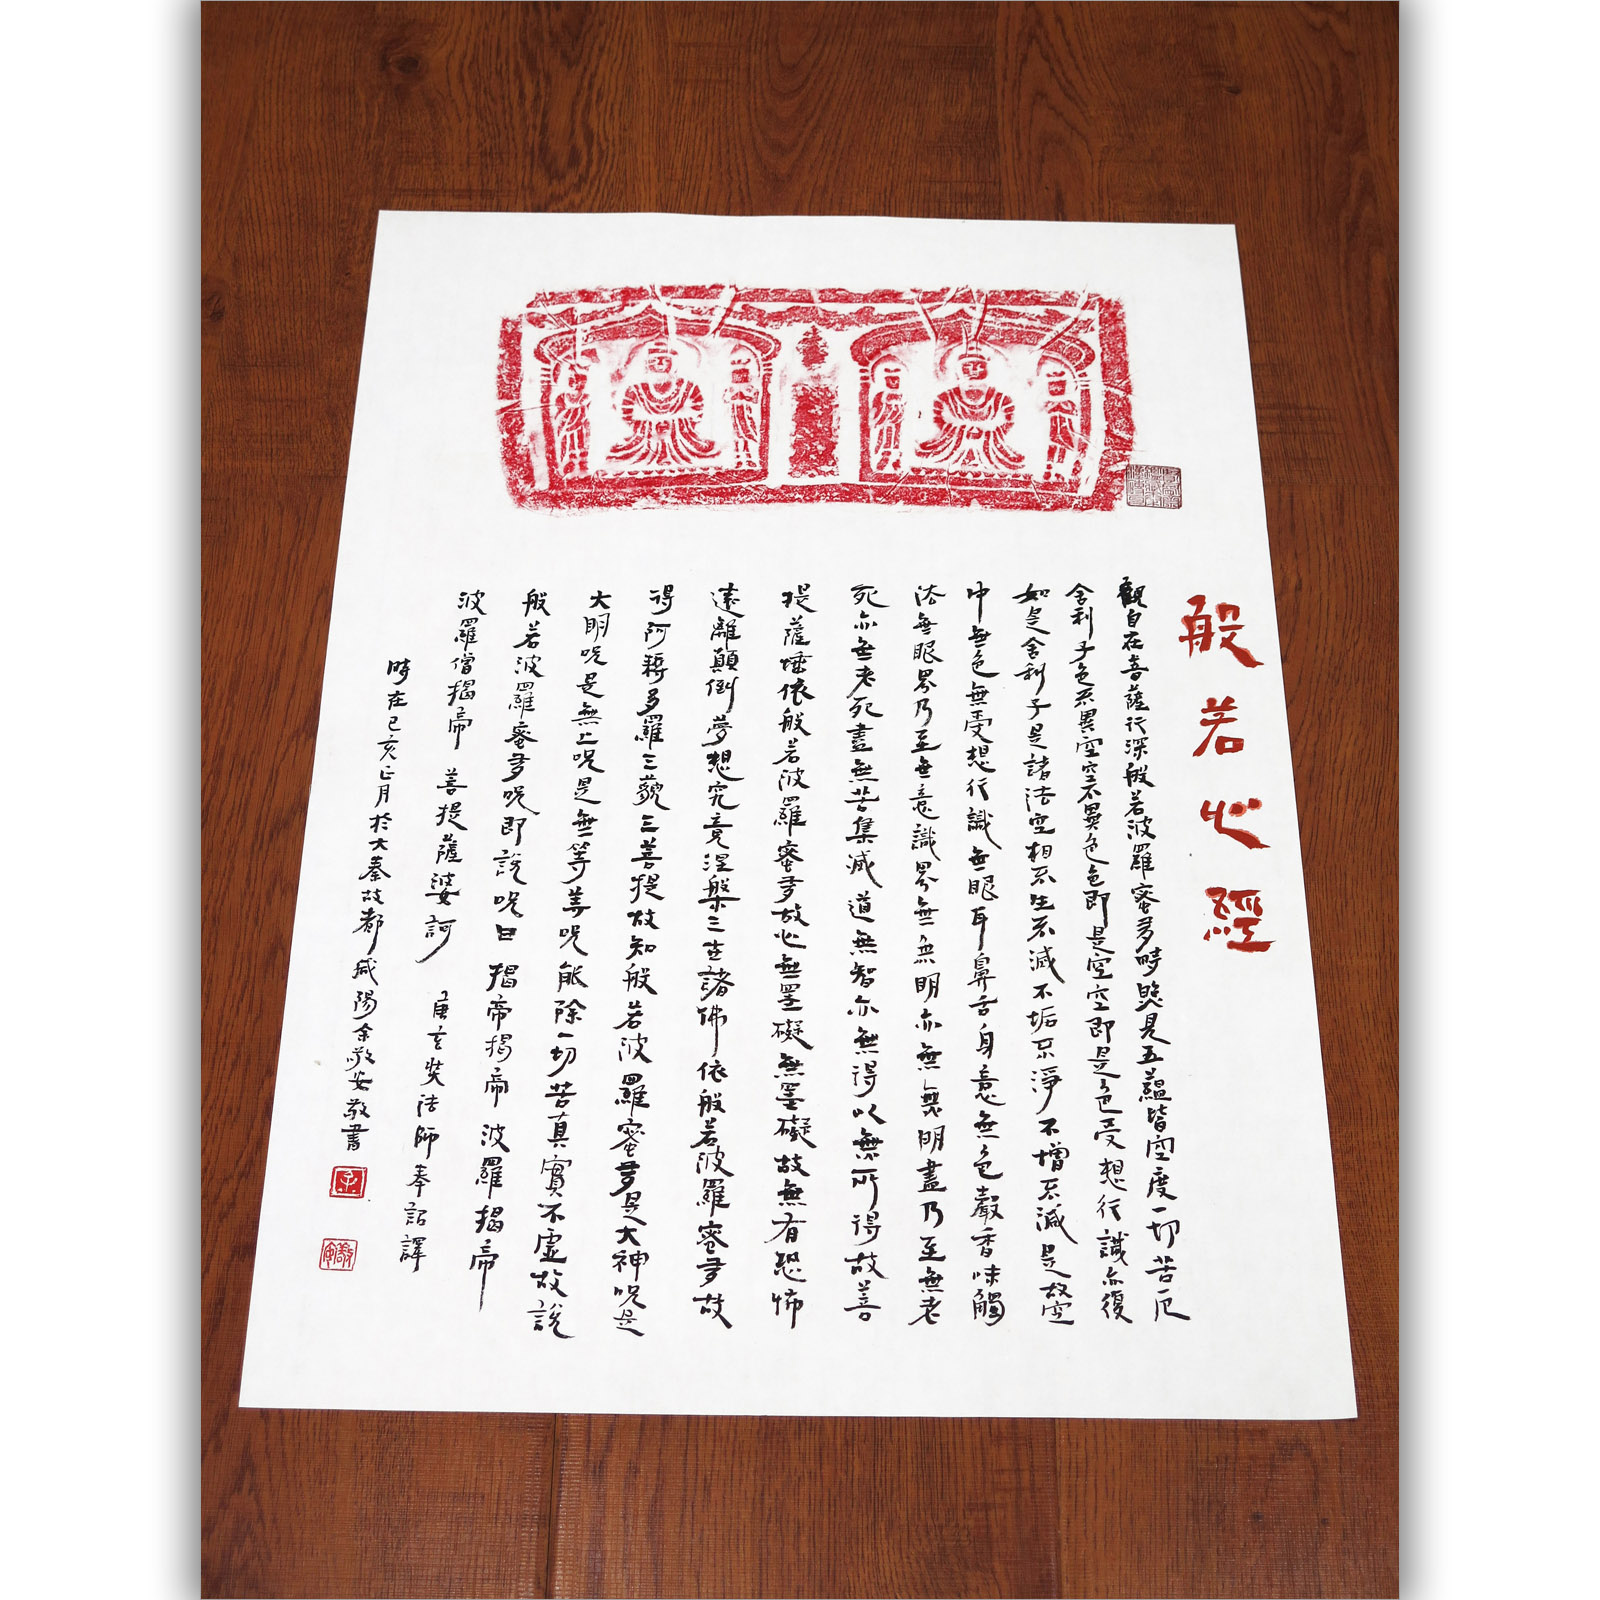 般若心經
觀自在菩薩行深般若波羅蜜多時照見五蘊皆空度一切苦厄
舍利子色不異空空不異色色即是空空即是色受想行識亦復
如是舍利子是諸法空相不生不滅不垢不淨不增不減是故空
中無色無受想行識無眼耳鼻舌身意無色聲香味觸
法無眼界乃至無意識界無無明亦無無明盡乃至無老
死亦無老死盡無苦集滅道無智亦無得以無所得故菩
提薩埵依般若波羅蜜多故心無罣礙無罣礙故無有恐怖
遠離顛倒夢想究竟涅槃三世諸佛依般若波羅蜜多故
得阿耨多羅三藐三菩提故知般若波羅蜜多是大神咒是
大明咒是無上咒是無等等咒能除一切苦真實不虛故說
般若波羅蜜多咒即說咒曰 揭帝揭帝 波羅揭帝
波羅僧揭帝 菩提薩婆訶 唐玄奘法師奉詔譯
時在己亥正月於大秦故都咸陽余敬安敬書